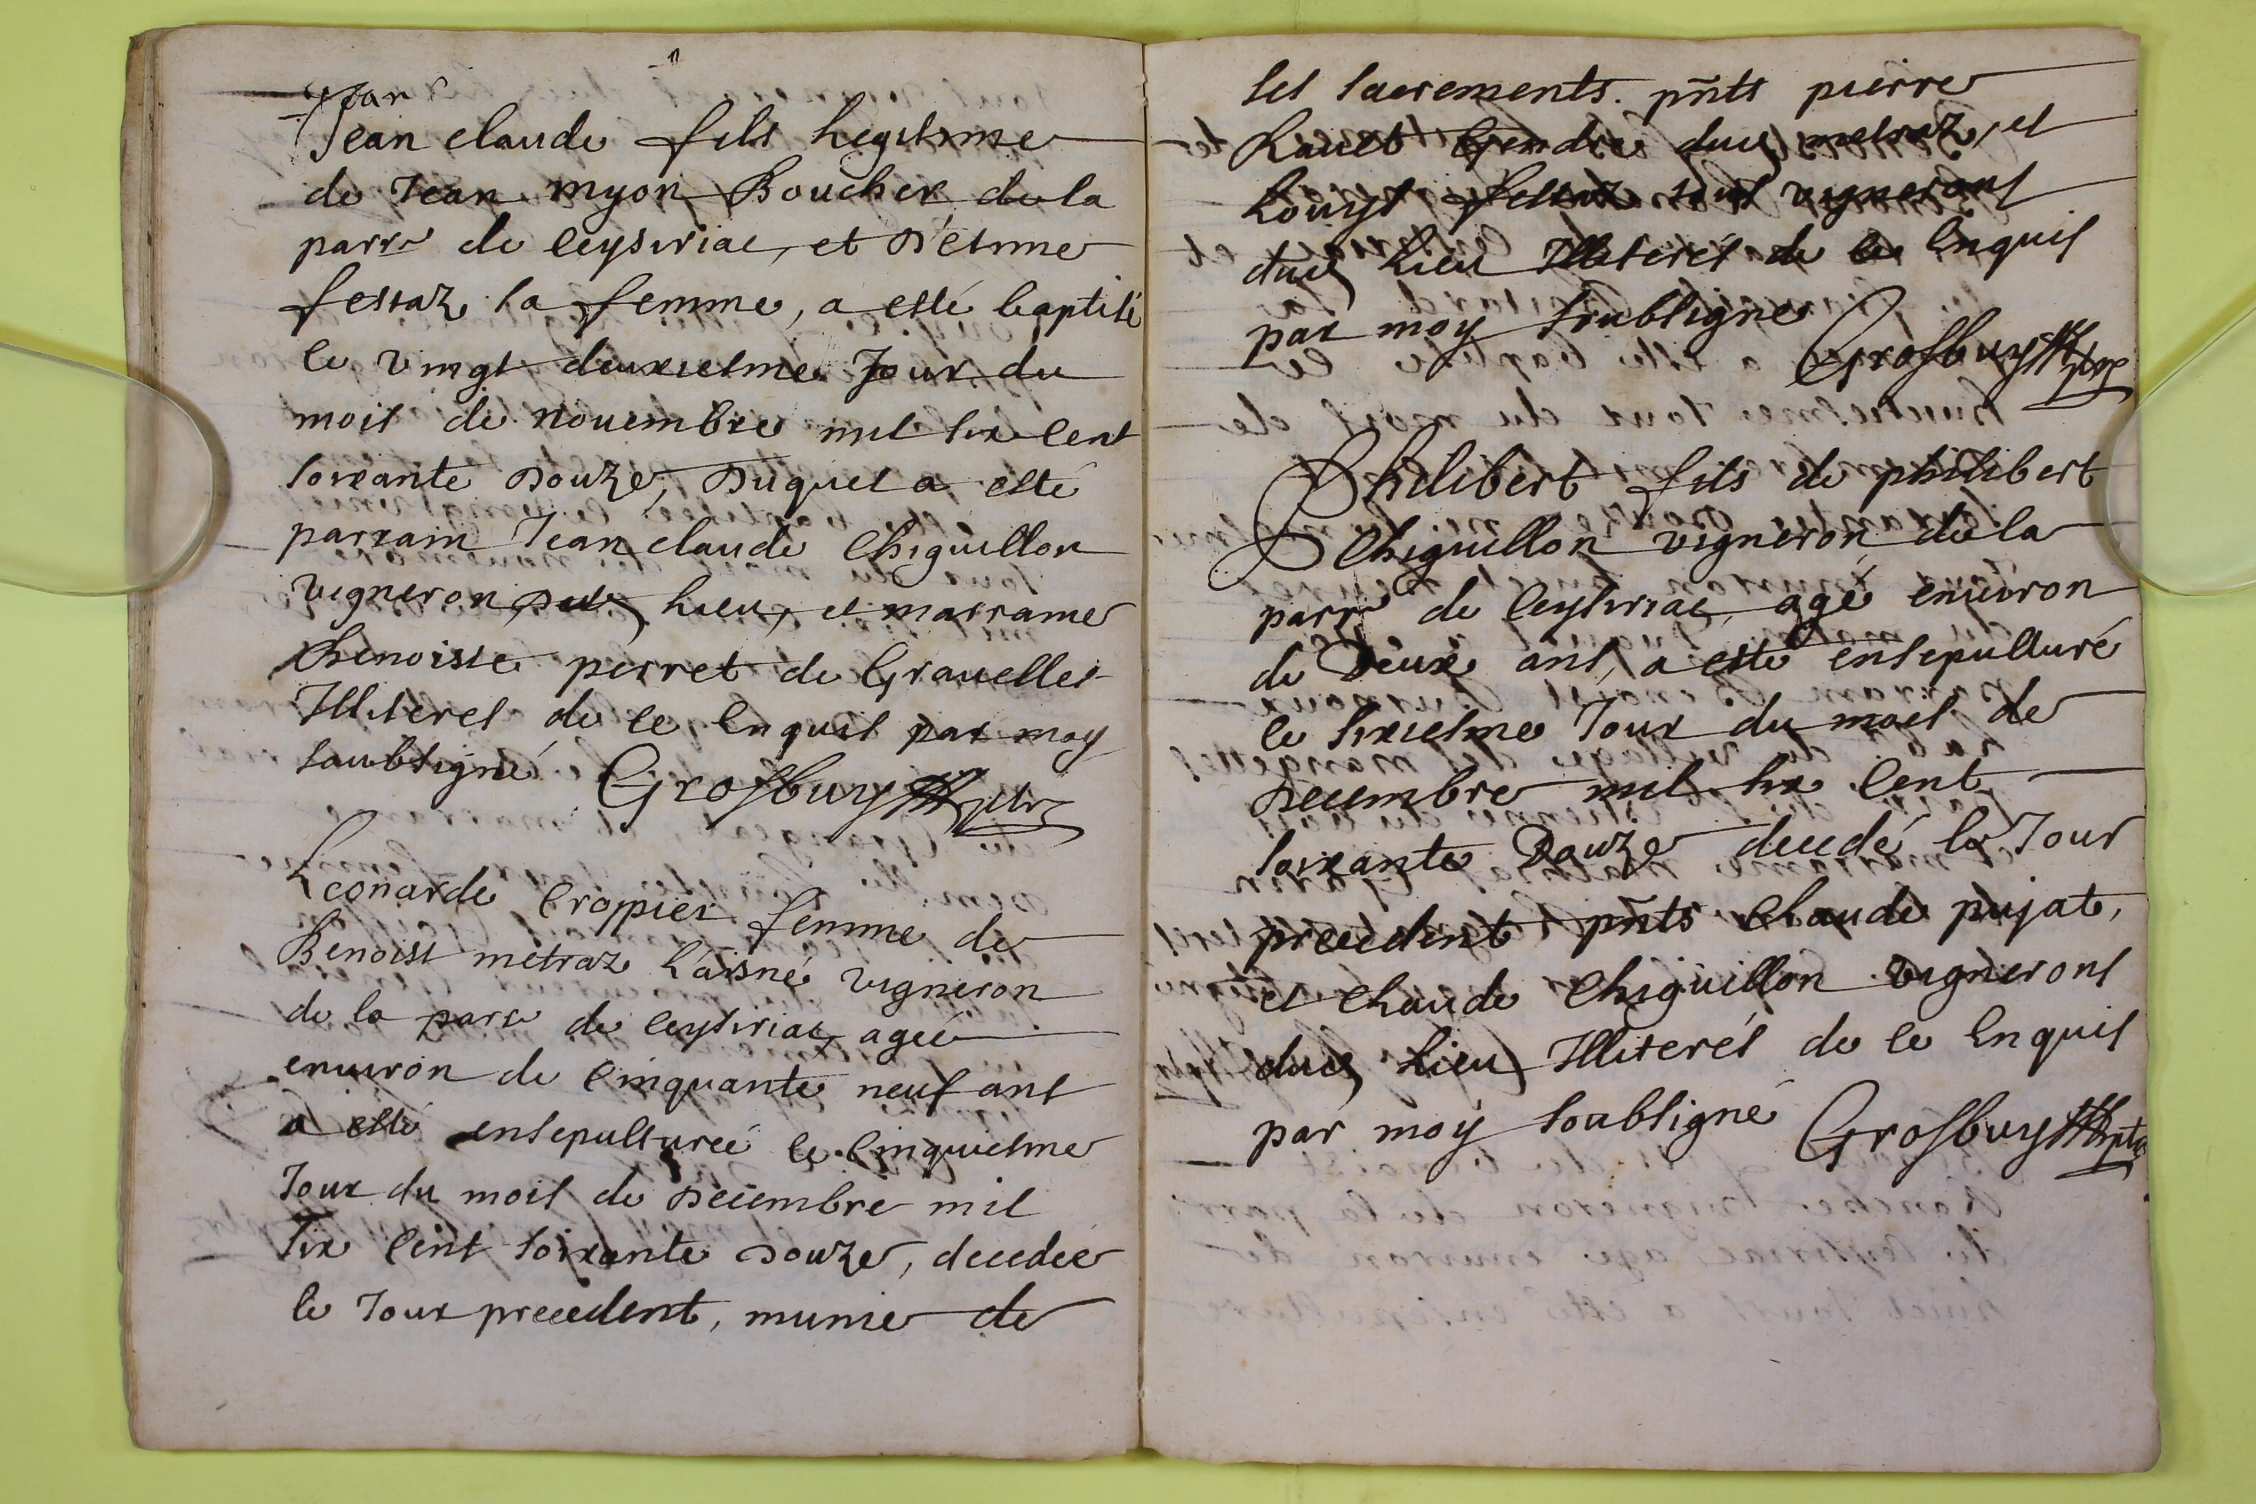 Jean
Jean claude fils Legitime
de Jean myon Boucher de la
parr.e de Ceysiriac, et d'Etme
fessaz sa femme, a esté baptisé
le vingt deuxiesme Jour du
mois de Nouembre mil six cent
soixante Douze, Duquel a esté
parrain Jean claude Chiguillon
vigneron dud Lieu, et marraine
Benoiste perret de Grauelles
Illiterés de ce Enquis par moy
soubsigné Grosbuys pbr
Leonarde Croppier femme de
Benoist metraz L'aisné vigneron
de la parr.e de Ceysiriac, ageé
enuiron de Cinquante neuf ans
a esté ensepultureé le Cinquiesme
Jour du mois de Decembre mil
six Cent soixante Douze, decedeé
le Jour precedent, munie de
ses sacrements. pñts pierre
Rauet Gendre dud metraz, et
Louys fessaz tous vignerons
dud Lieu Illiterés de ce Enquis
par moy soubsigné Grosbuys pbr
Philibert fils de philibert
Chiguillon vigneron de la
parr.e de Ceysiriac, agé enuiron
de Deux ans, a esté ensepulturé
le sixiesme Jour du mois de
Decembre mil six Cent
soixante Douze decedé le Jour
precedent pñts Claude pujat,
et Claude Chiguillon vignerons
dud Lieu Illiterés de ce Enquis
par moy soubsigné Grosbuys pbr